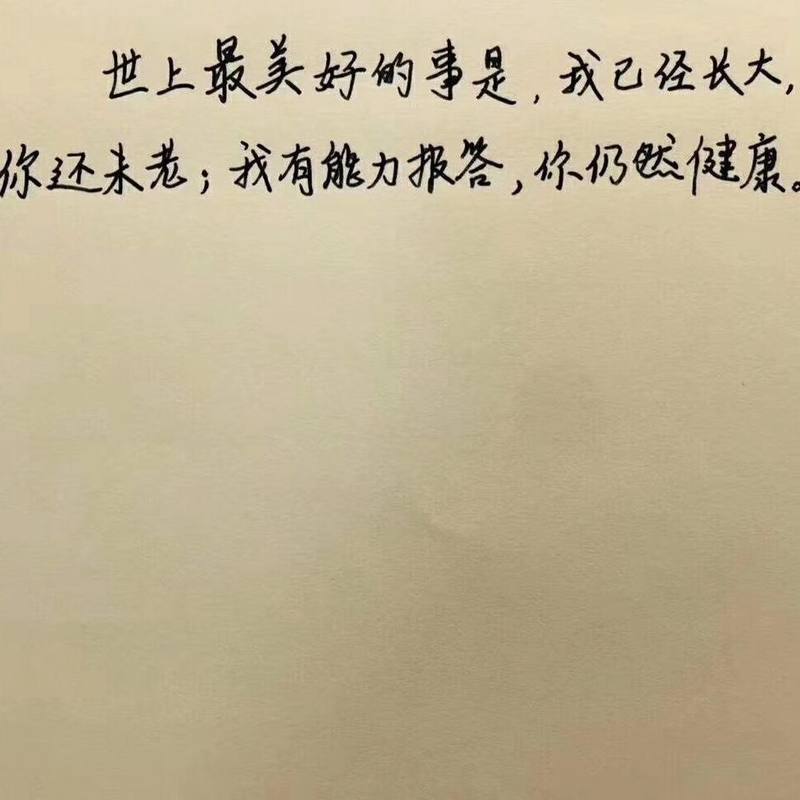 世上最美好的事是，我已经长大，
你还未老；我有能力报答，你仍然健康。